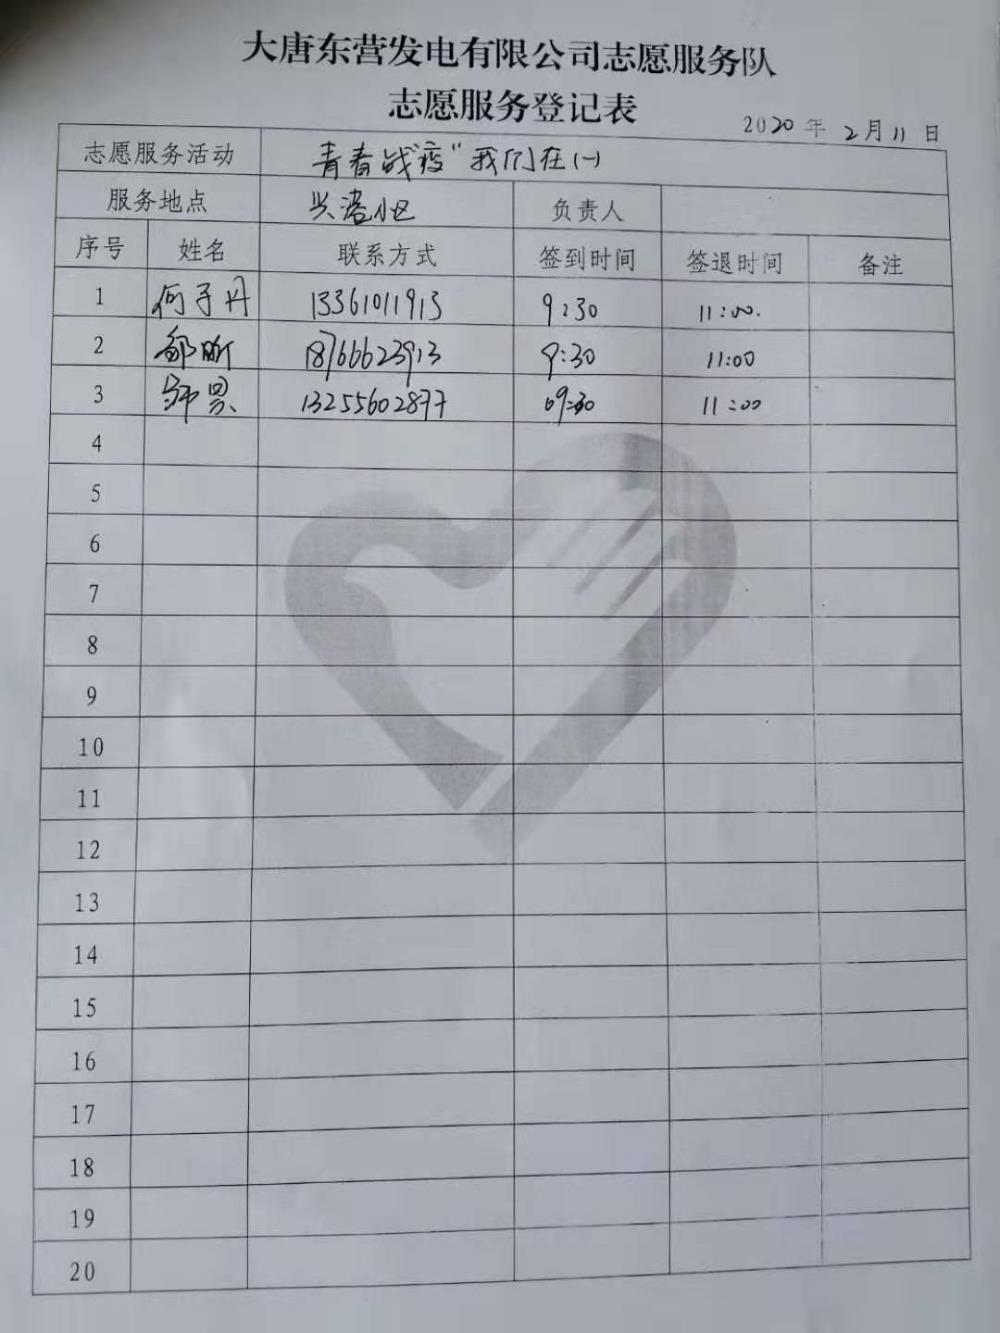 大唐东营发电有限公司志愿服务队
志愿服务登记表
2020年2月11日
志愿服务活动 青春战"疫"我们在(一)
服务地点 兴港小区 负责人
序号 姓名 联系方式 签到时间 签退时间 备注
1 何子丹 13361011913 9:30 11:00.
2 18766623913 9:30 11:00
3 13255602877 09:30 11:00
4
5
6
7
8
9
10
11
12
13
14
15
16
17
18
19
20